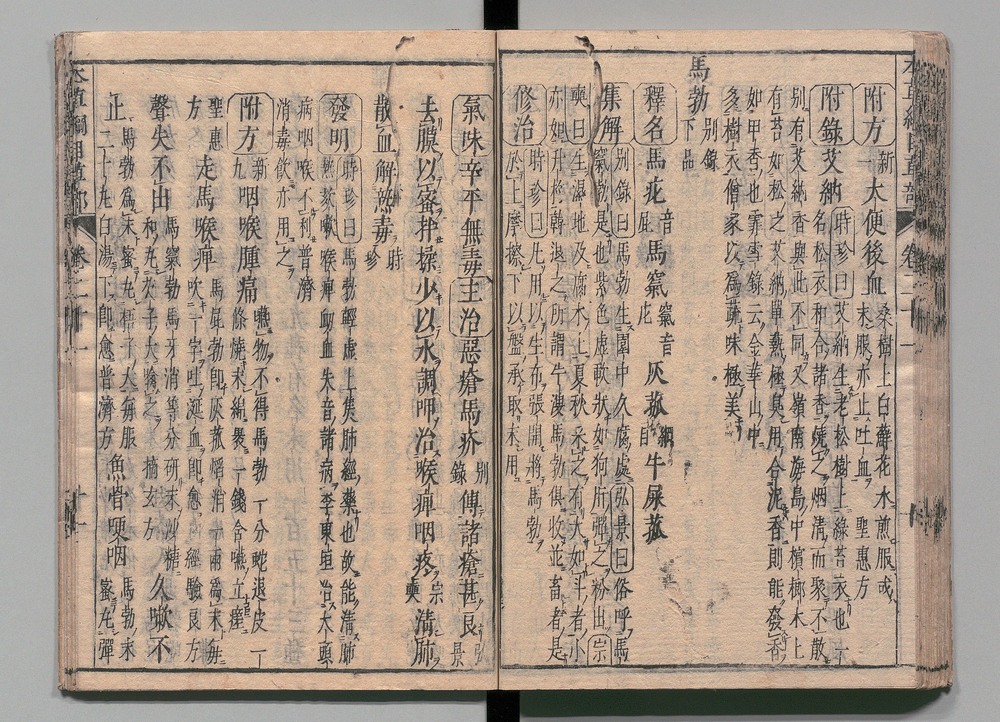 附方 新一 大便後血 桑樹上白蘚花水煎服或末服亦止吐血 聖惠方
附錄 艾納 時珍曰艾納生老松樹上綠苔衣也一名松衣和合諸香燒之烟清而聚不散
别有艾納香與此不同又嶺南海島中檳榔木上
有苔如松之艾納單爇極臭用合泥香則能發香
如甲香也霏雪錄云金華山中
多樹衣僧家以為蔬味極美
馬勃 别錄下品
釋名 馬疕 音屁 馬窠 窠音庀 灰菰 綱目 牛屎菰
集解 别錄曰馬勃生園中久腐處弘景曰俗呼馬窠勃是也紫色虛軟狀如狗肺彈之粉出宗
奭曰生濕地及腐木上夏秋采之有大如斗者小
亦如升杓韓退之所謂牛溲馬勃俱收並畜者是
修治 時珍曰凡用以生布張開將馬勃於上摩擦下以盤承取末用
氣味 辛平無毒 主治 惡瘡馬疥 别錄 傅諸瘡甚良 弘景
去膜以蜜拌揉少以水調呷治喉痺咽疼 宗奭 清肺
散血解熱毒 時珍
發明 時珍曰馬勃輕虛上焦肺經藥也故能清肺熱欬嗽喉痺衄血失音諸病李東垣治大頭
病咽喉不利普濟
消毒飲亦用之
附方 新九 咽喉腫痛 嚥物不得馬勃一分蛇退皮一條燒末綿裹一錢含嚥立瘥
聖惠方 走馬喉痺 馬屁勃即灰菰焰消一兩為末每吹一字吐涎血即愈 經驗良方
聲失不出 馬窠勃馬牙消等分研末沙糖和丸芡子大噙之 摘玄方 久嗽不
止 馬勃為末蜜丸梧子大每服二十丸白湯下即愈普濟方 魚骨哽咽 馬勃末蜜丸彈